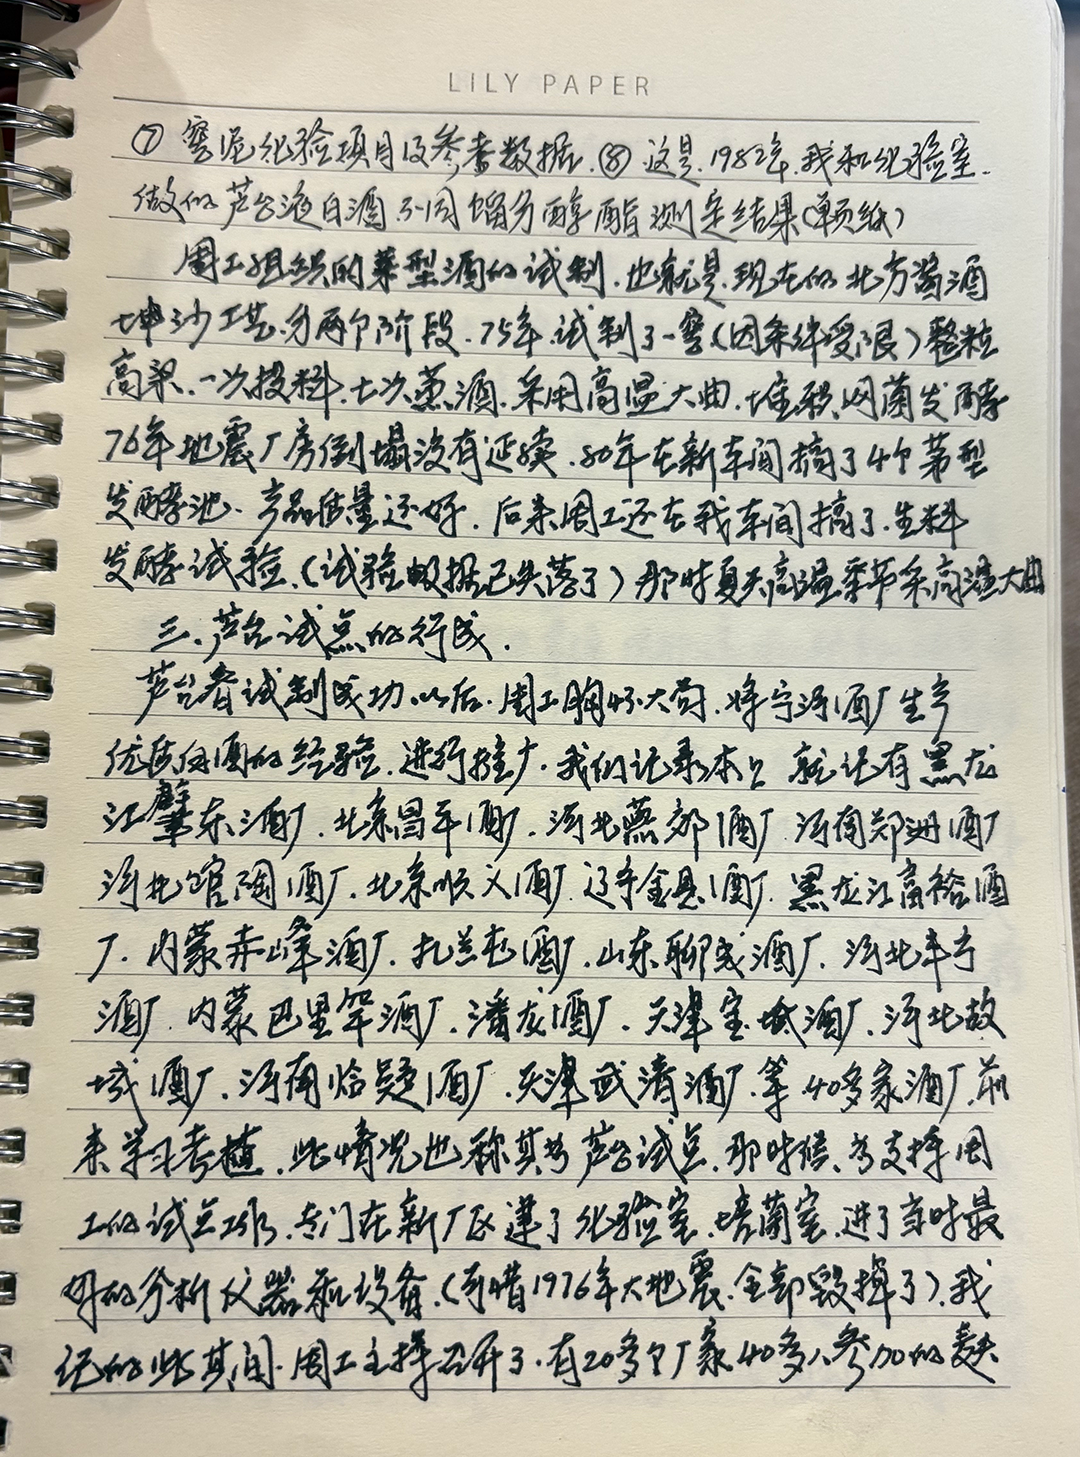 LILY PAPER
⑦ 窖泥化验项目及参考数据.⑧ 这是.1982年.我和化验室.
做的芦台液白酒不同馏分醇酯测定结果(单页纸)
周工组织的茅型酒的试制.也就是.现在的北方酱酒
坤沙工艺.分两个阶段.75年.试制了一窖(因条件受限)整粒
高梁.一次投料.七次蒸酒.采用高温大曲.堆积网菌发酵
76年地震厂房倒塌没有延续.80年在新车间搞了4个茅型
发酵池.产品质量还好.后来周工还在我车间搞了.生料
发酵试验.(试验数据已失落了)那时夏天高温季节采高温大曲
三.芦台试点的行成.
芦台春试制成功以后.周工胸怀大局.将宁河酒厂生产
优质白酒的经验.进行推广.我们记录本上 就记有黑龙
江肇东酒厂.北京昌平酒厂.河北燕郊酒厂.河南郑洲酒厂
河北馆陶酒厂.北京顺义酒厂.辽宁金县酒厂.黑龙江富裕酒
厂.内蒙赤峰酒厂.扎兰屯酒厂.山东聊城酒厂.河北丰宁
酒厂.内蒙巴里罕酒厂.潘龙酒厂.天津宝坻酒厂.河北故
城酒厂.河南临颍酒厂.天津武清酒厂.等.40多家酒厂.前
来学习考查.此情况也称其为芦台试点.那时候.为支持周
工的试点工作.专门在新厂区建了化验室.培菌室.进了当时最
好的分析仪器和设备.(可惜1976年大地震.全部毁掉了).我
记的此其间.周工主持召开了.有20多个厂家40多人参加的麸